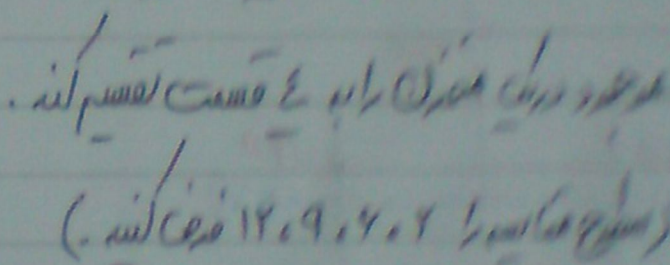 موجود در یک فنزک را به ٤ قسمت تقسیم کند.
(سطوح مقایسه را ۲، ۶، ۹، ۱۲ فرض کنید.)